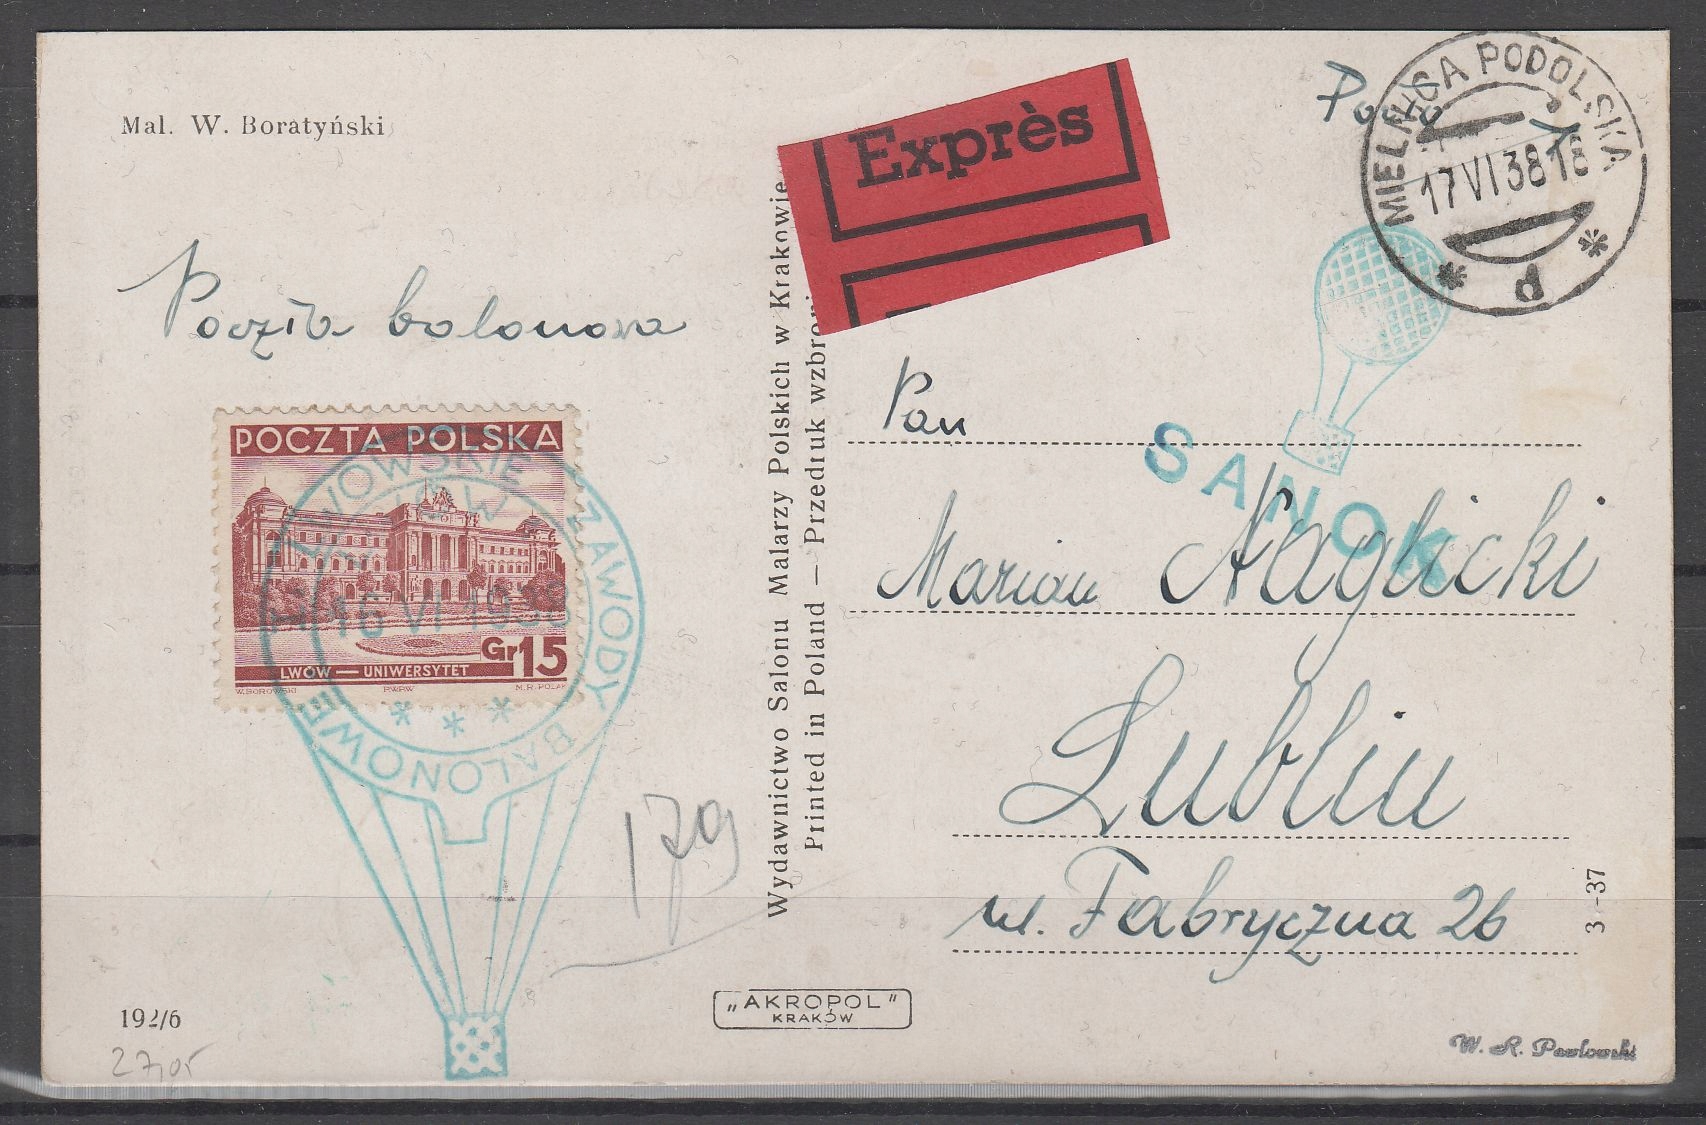 Mal. W. Boratyński
Exprès
MIELNICA PODOLSKA
17 VI 38 18
Poczta balonowa
POCZTA POLSKA
Gr 15
LWÓW — UNIWERSYTET
W. BOROWSKI PWPW M.R. POLAK
LWOWSKIE ZAWODY BALONOWE
LWÓW
16 VI 1938
* * *
Wydawnictwo Salonu Malarzy Polskich w Krakowie
Printed in Poland — Przedruk
SANOK
Pan
Marian
Lublin
ul. Fabryczna 26
179
„AKROPOL"
KRAKÓW
192/6
27,05
W. R. Pawlowski